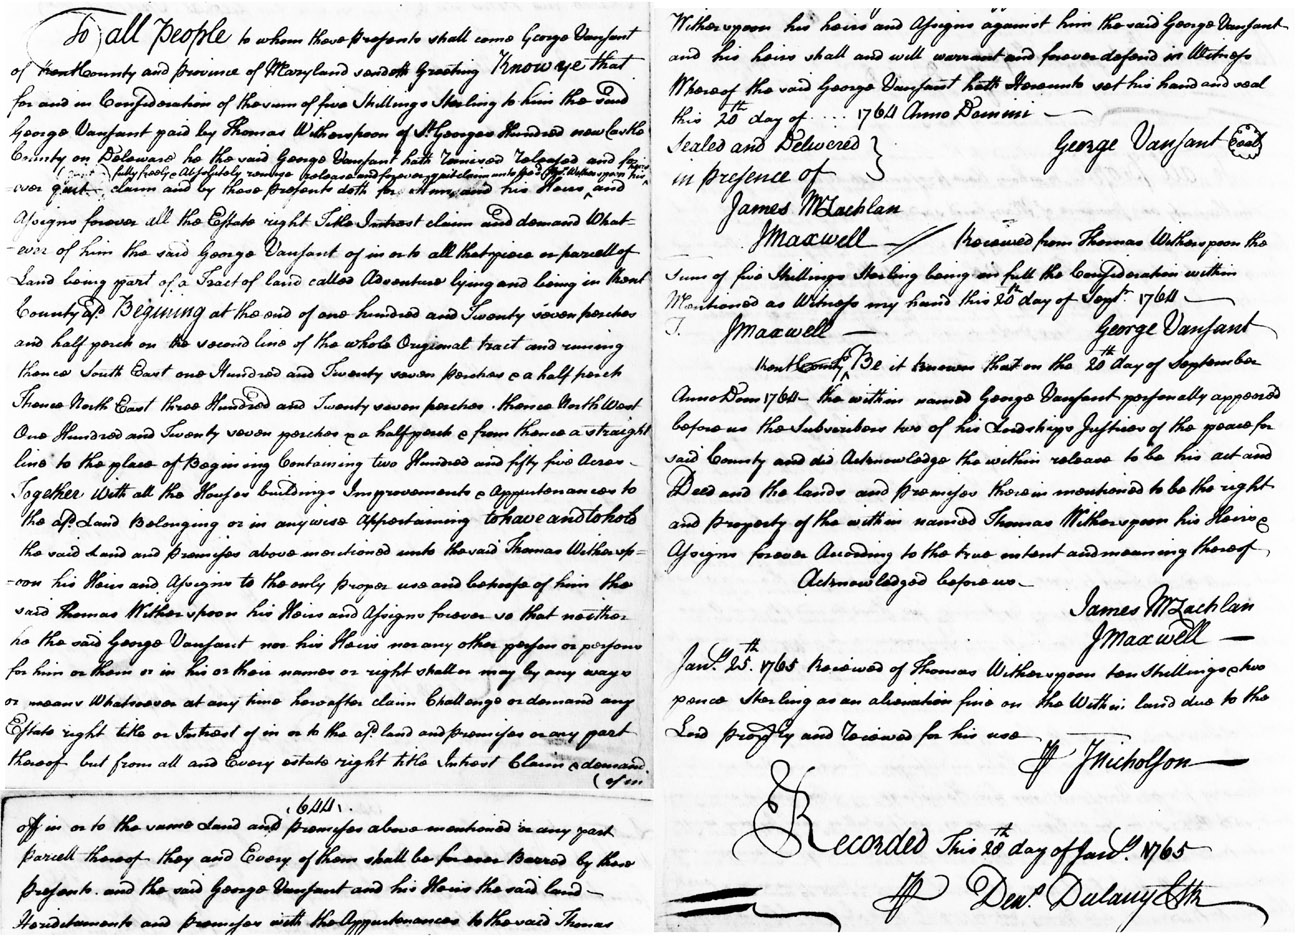 To all People to whom these Presents shall come George Vansant
of Kent County and Province of Maryland sendeth Greeting Know ye that
for and in Consideration of the sum of five Shillings Sterling to him the said
George Vansant paid by Thomas Witherspoon of St. Georges Hundred new Castle
County on Deleware he the said George Vansant hath remised released and for
fully freely & Absolutely remise release and forever quit claim unto ye sd. Thos. Witherspoon his
-ever quit claim and by these Presents doth for him and his Heirs and
Assigns forever all the Estate right Title Intrest claim and demand What-
-ever of him the said George Vansant of in or to all that piece or parcell of
Land being part of a Tract of land called Adventure lying and being in Kent
County afsd. Begining at the end of one hundred and Twenty seven perches
and half perch on the second line of the whole Original tract and runing
thence South East one Hundred and Twenty seven perches & a half perch
Thence North East three Hundred and Twenty seven perches. thence North West
One Hundred and Twenty seven perches & a half perch & from thence a straight
line to the place of Begining Containing two Hundred and fifty five Acres -
Together with all the Houses buildings Improvements & Appurtenances to
the afsd. Land Belonging or in any wise Appertaining to have and to hold
the said Land and premises above mentioned unto the said Thomas Withersp=
=oon his Heirs and Assigns to the only proper use and behoofe of him the
said Thomas Witherspoon his Heirs and Assigns forever so that neither
he the said George Vansant nor his Heirs nor any other person or persons
for him or them or in his or their names or right shall or may by any ways
or means Whatsoever at any time hereafter claim Challenge or demand any
Estate right title or Intrest of in or to the afsd. land and premises or any part
thereof but from all and Every estate right title Intrest Claim & demand
(of in
.644.
off in or to the same Land and premises above mentioned or any part
parcell thereof they and Every of them shall be forever Barred by these
presents. and the said George Vansant and his Heirs the said land -
Herditaments and premises with the Appurtenances to the said Thomas
Witherspoon his heirs and Assigns against him the said George Vansant
and his heirs shall and will warrant and forever defend in Witness
Whereof the said George Vansant hath Hereunto set his hand and seal
this 20th day of .... 1764 Anno Domini
Sealed and Delivered } George Vansant Seal
in presence of
James McLachlan
J Maxwell - // Received from Thomas Witherspoon the
Sum of five Shillings Sterling being in full the Consideration within
Mentioned as Witness my hand this 20th day of Sept. 1764
T. J Maxwell - George Vansant
Kent County Sc. Be it known that on the 20th day of September
Anno Dom 1764 - the within named George Vansant personally appeared
before us the Subscribers two of his Lordships Justices of the peace for
said County and did Acknowledge the within release to be his act and
Deed and the lands and premises therein mentioned to be the right
and property of the within named Thomas Witherspoon his Heirs &
Assigns forever Acording to the true intent and meaning thereof
Acknowledged before us -
James McLachlan
J Maxwell -
Janry. 25th. 1765 Received of Thomas Witherspoon ten shillings & two
pence Sterling as an alienation fine on the Within land due to the
Lord propry and received for his use
J Nicholson
Recorded This 28th day of Janry. 1765
Den. Dulany Clk